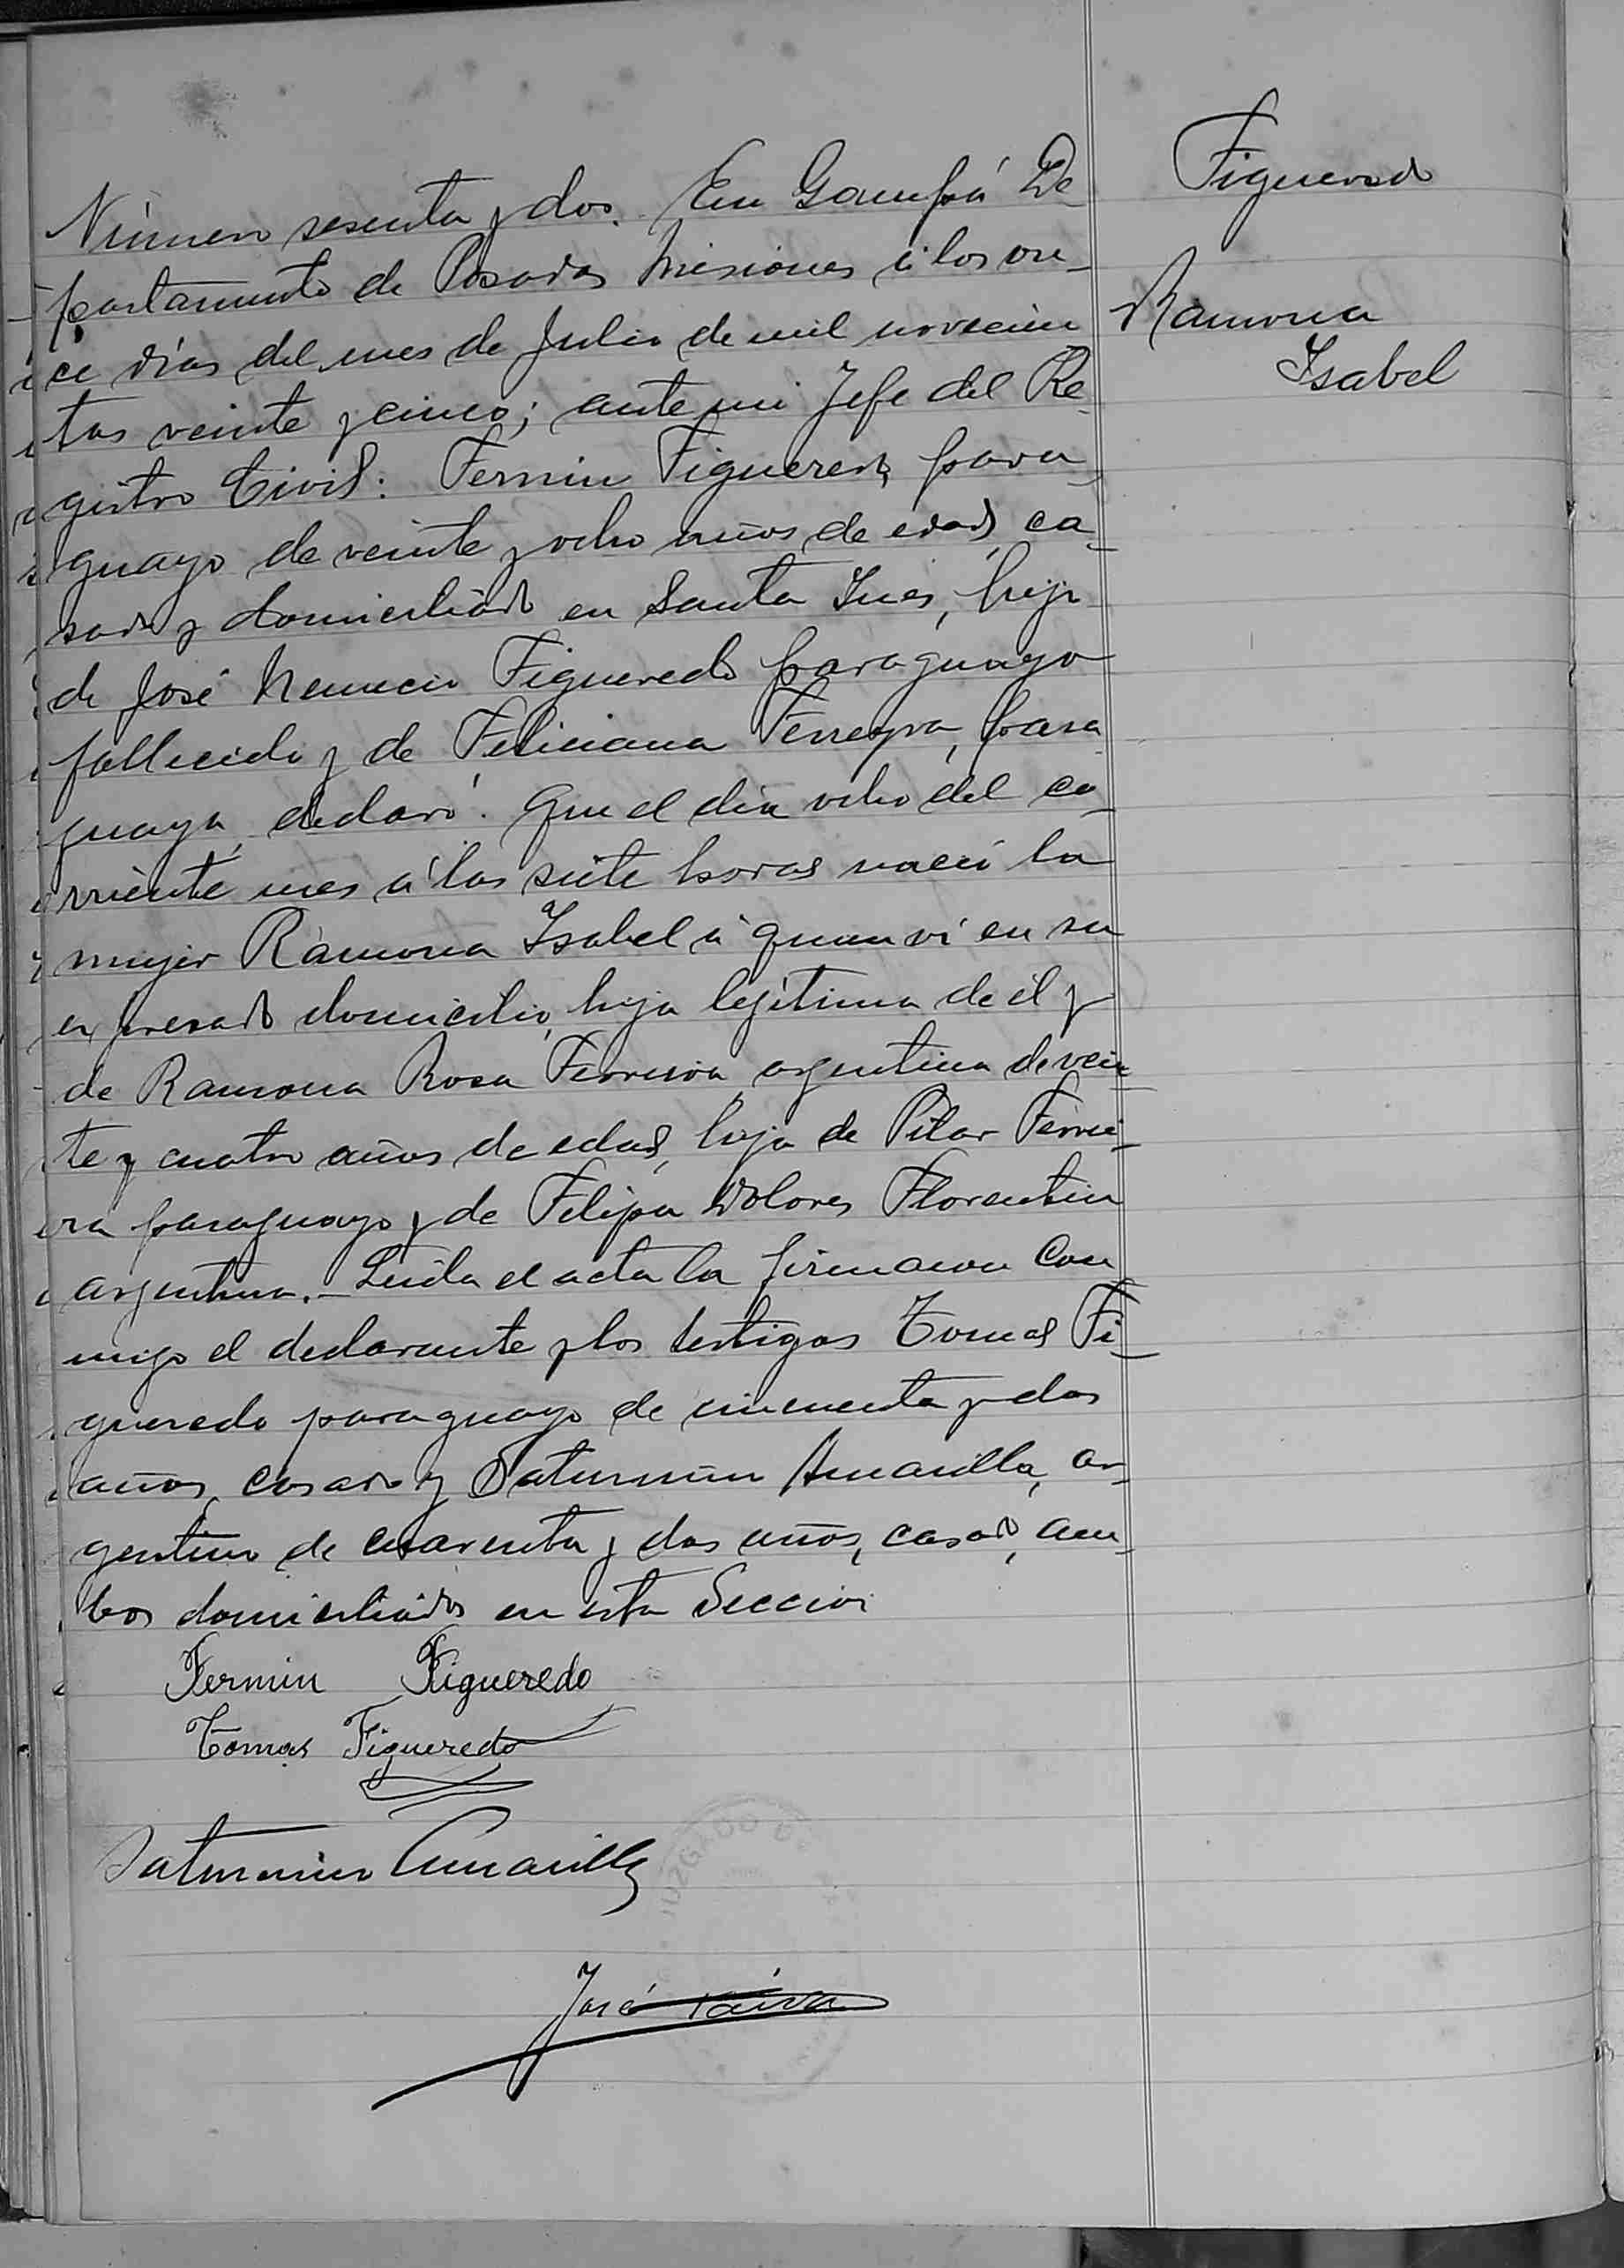 Figueredo
Ramona
Isabel
Número sesenta y dos. En Garupá De
partamento de Posadas Misiones á los on
ce días del mes de Julio de mil novecien
tos veinte y cinco; ante mi Jefe del Re
gistro Civil: Fermin Figueredo, para
guayo de veinte y ocho años de edad, ca
sado y domiciliado en Santa Ines, hijo
de José Nemecio Figueredo paraguayo
fallecido y de Feliciana Ferreyra, para
guaya, declaró: Que el día ocho del co
rriente mes á las siete horas nació la
mujer Ramona Isabel á quien ví en su
expresado domicilio, hija legítima de él y
de Ramona Rosa Ferreira, argentina de vein
te y cuatro años de edad, hija de Pilar Ferrei
ra paraguayo y de Filipa Dolores Florentin
argentina.- Leida el acta la firmaron Con
migo el declarante y los testigos Tomas Fi
gueredo paraguayo de cincuenta y dos
años, casado y Saturnino Amarilla, ar
gentino de cuarenta y dos años, casado, am
bos domiciliados en esta Sección
Fermin Figueredo
Tomas Figueredo
Saturnino Amarilla
José Paiva
JUZGADO